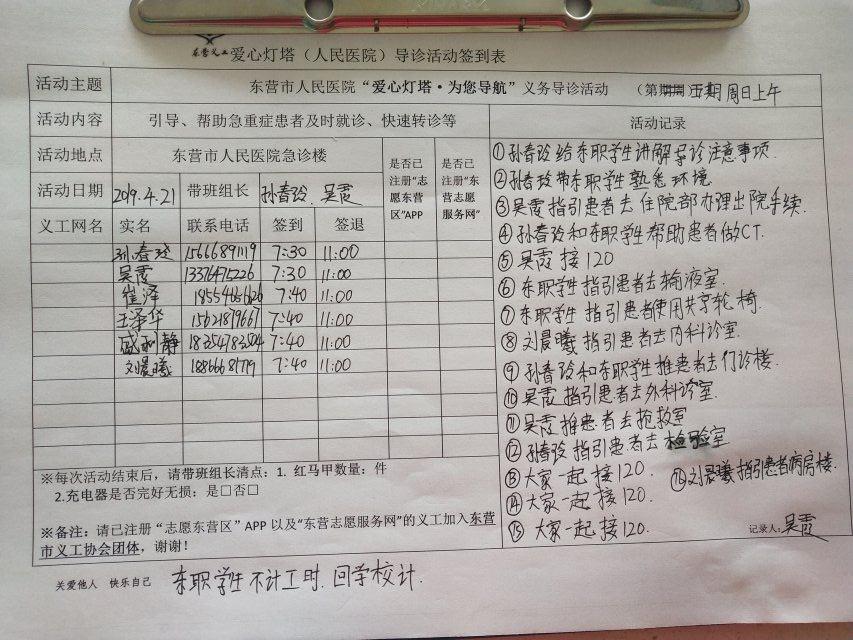 东营义工 爱心灯塔（人民医院）导诊活动签到表
活动主题 东营市人民医院“爱心灯塔·为您导航”义务导诊活动 （第五期 周日上午
活动内容 引导、帮助急重症患者及时就诊、快速转诊等 活动记录
活动地点 东营市人民医院急诊楼
是否已注册“志愿东营区”APP
是否已注册“东营志愿服务网”
活动日期 2019.4.21 带班组长 孙春玲、吴霞
义工网名 实名 联系电话 签到 签退
孙春玲 15666891119 7:30 11:00
吴霞 13376475226 7:30 11:00
崔泽 7:40 11:00
王泽华 15621819667 7:40 11:00
戚利静 18354783504 7:40 11:00
刘晨曦 7:40 11:00
①孙春玲给东职学生讲解导诊注意事项.
②孙春玲带东职学生熟悉环境
③吴霞指引患者去住院部办理出院手续.
④孙春玲和东职学生帮助患者做CT.
⑤吴霞接120
⑥东职学生指引患者去输液室.
⑦东职学生指引患者使用共享轮椅.
⑧刘晨曦指引患者去内科诊室.
⑨孙春玲和东职学生推患者去门诊楼.
⑩吴霞指引患者去外科诊室.
⑪吴霞推患者去抢救室
⑫孙春玲指引患者去检验室
⑬大家一起接120.
⑯刘晨曦指引患者病房楼.
⑭大家一起接120.
⑮大家一起接120.
记录人：吴霞
※每次活动结束后，请带班组长清点：1. 红马甲数量： 件
2.充电器是否完好无损：是□否□
※备注：请已注册“志愿东营区”APP 以及“东营志愿服务网”的义工加入东营
市义工协会团体，谢谢！
关爱他人 快乐自己 东职学生不计工时.回学校计.